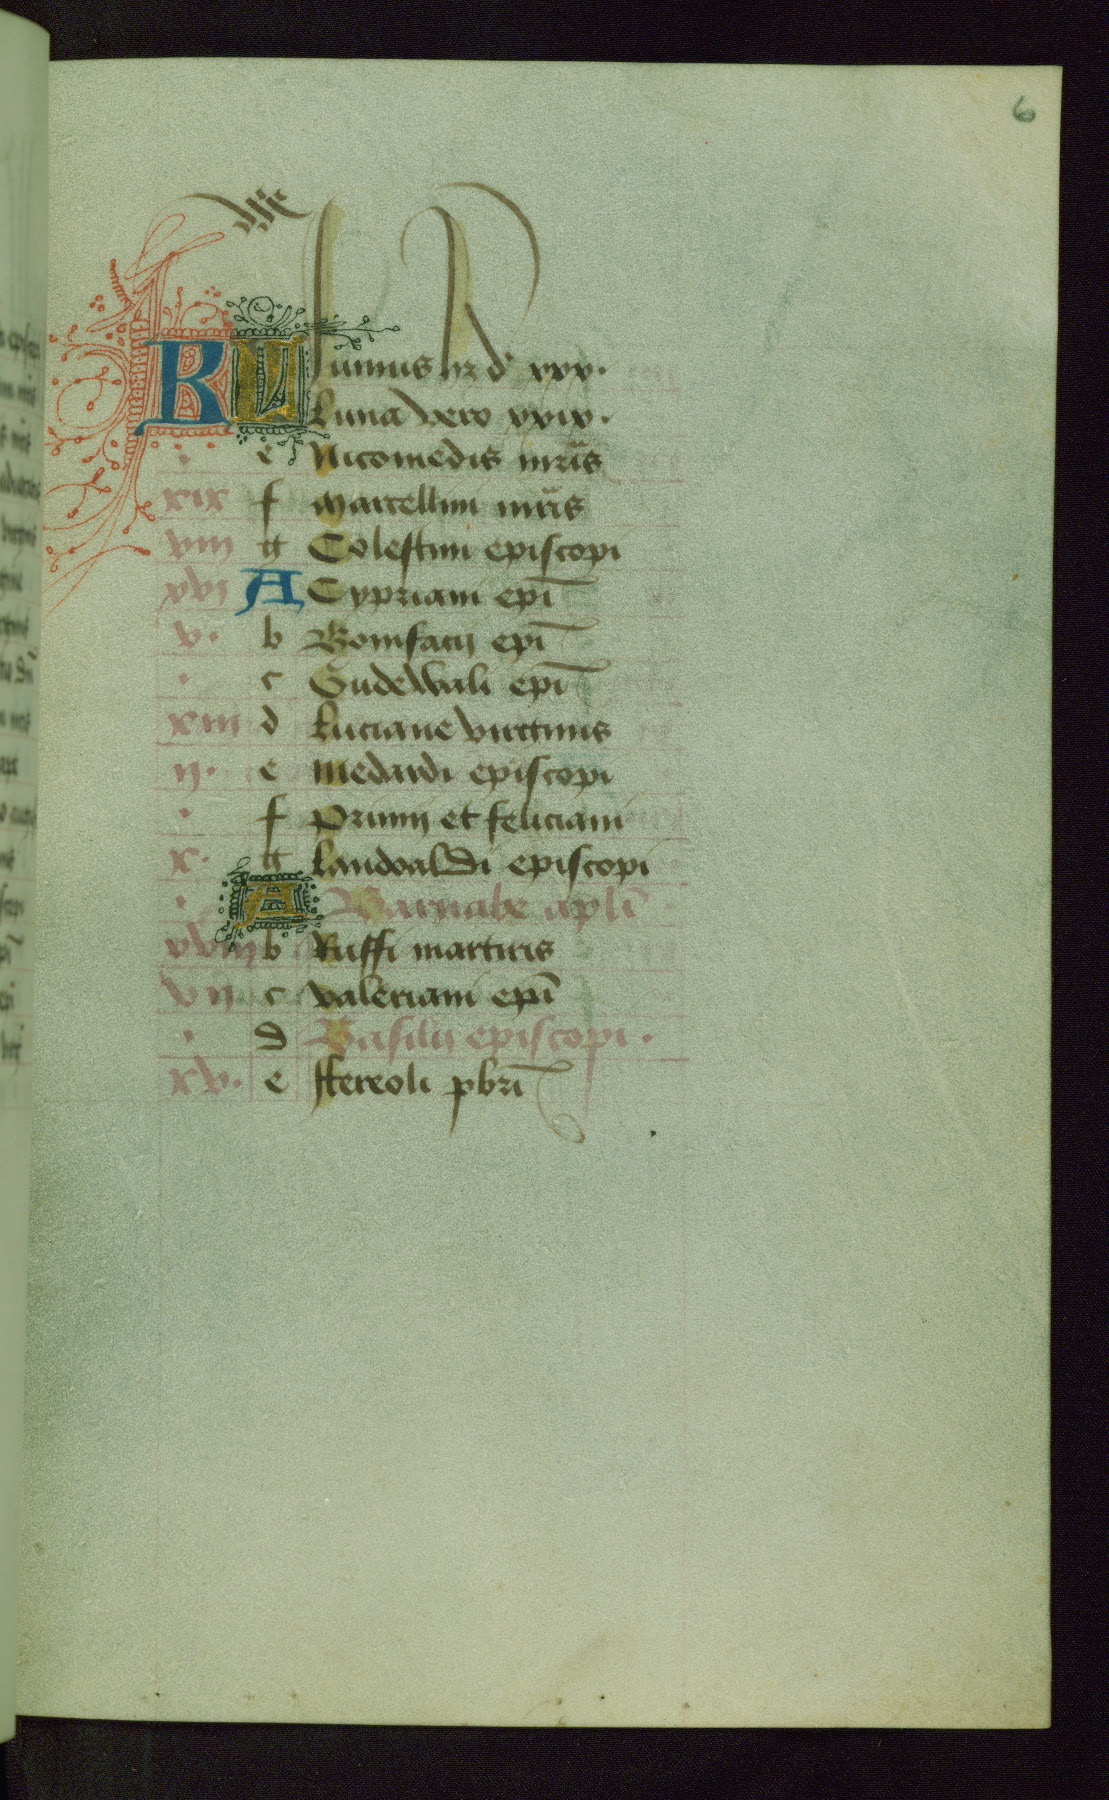 6
KL Iunius hꝫ dˢ xxx.
Luna vero xxix.
. e Nicomedis mr̄is
xix f Marcellini mr̄is
viij g Celestini episcopi
xvi A Cypriani epī
v. b Bonifacij epī
. c Gudewali epī
xiii d Luciane virginis
ij. e Medardi episcopi
. f Primij et feliciani
x. g Landoaldi episcopi
. A Barnabe aplī
xviij b Ruffi martiris
vij c Valeriani epī
. d Basilii episcopi.
xv. e ffereoli pbr̄i